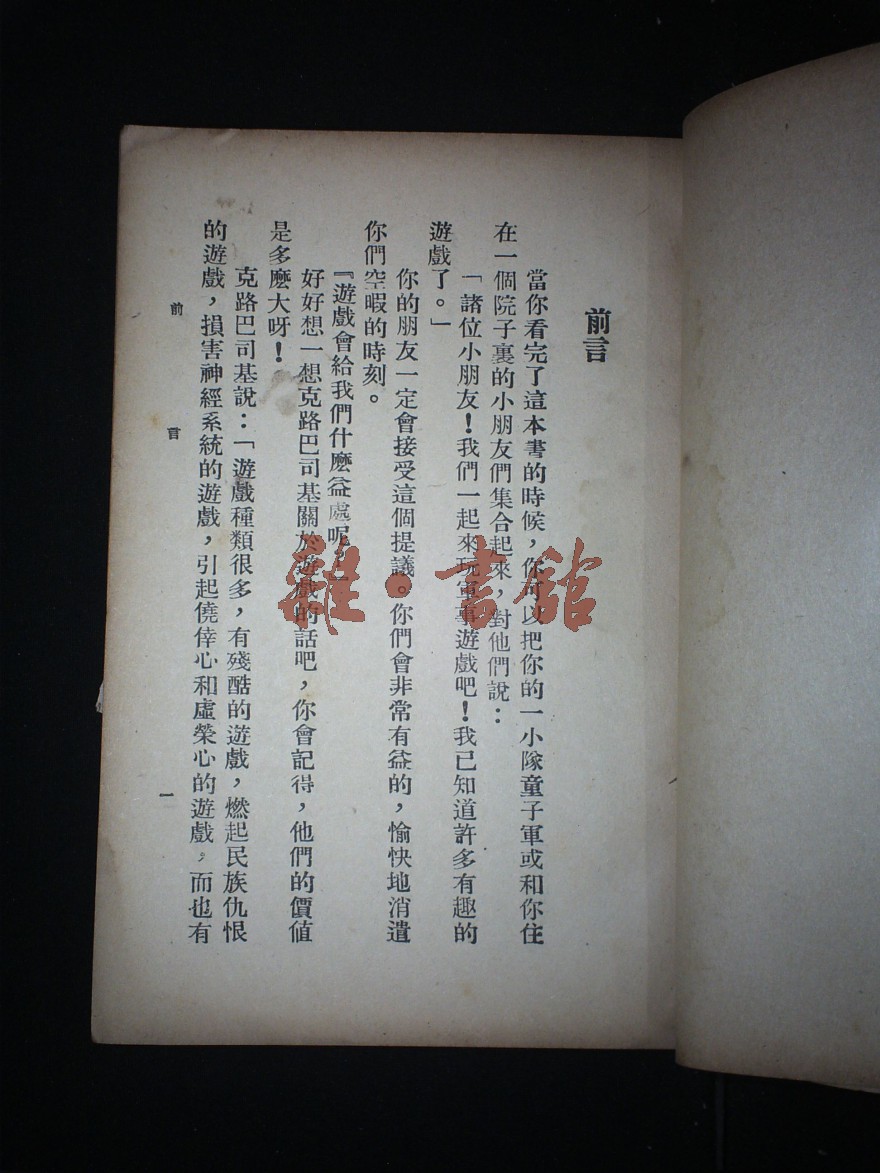 前言
當你看完了這本書的時候，你可以把你的一小隊童子軍或和你住
在一個院子裏的小朋友們集合起來，對他們說：
「諸位小朋友！我們一起來玩軍事遊戲吧！我已知道許多有趣的
遊戲了。」
你的朋友一定會接受這個提議。你們會非常有益的，愉快地消遣
你們空暇的時刻。
『遊戲會給我們什麽益處呢？』
好好想一想克路巴司基關於遊戲的話吧，你會記得，他們的價值
是多麽大呀！
克路巴司基說：「遊戲種類很多，有殘酷的遊戲，燃起民族仇恨
的遊戲，損害神經系統的遊戲，引起僥倖心和虛榮心的遊戲，而也有
前言
一
雜·書館